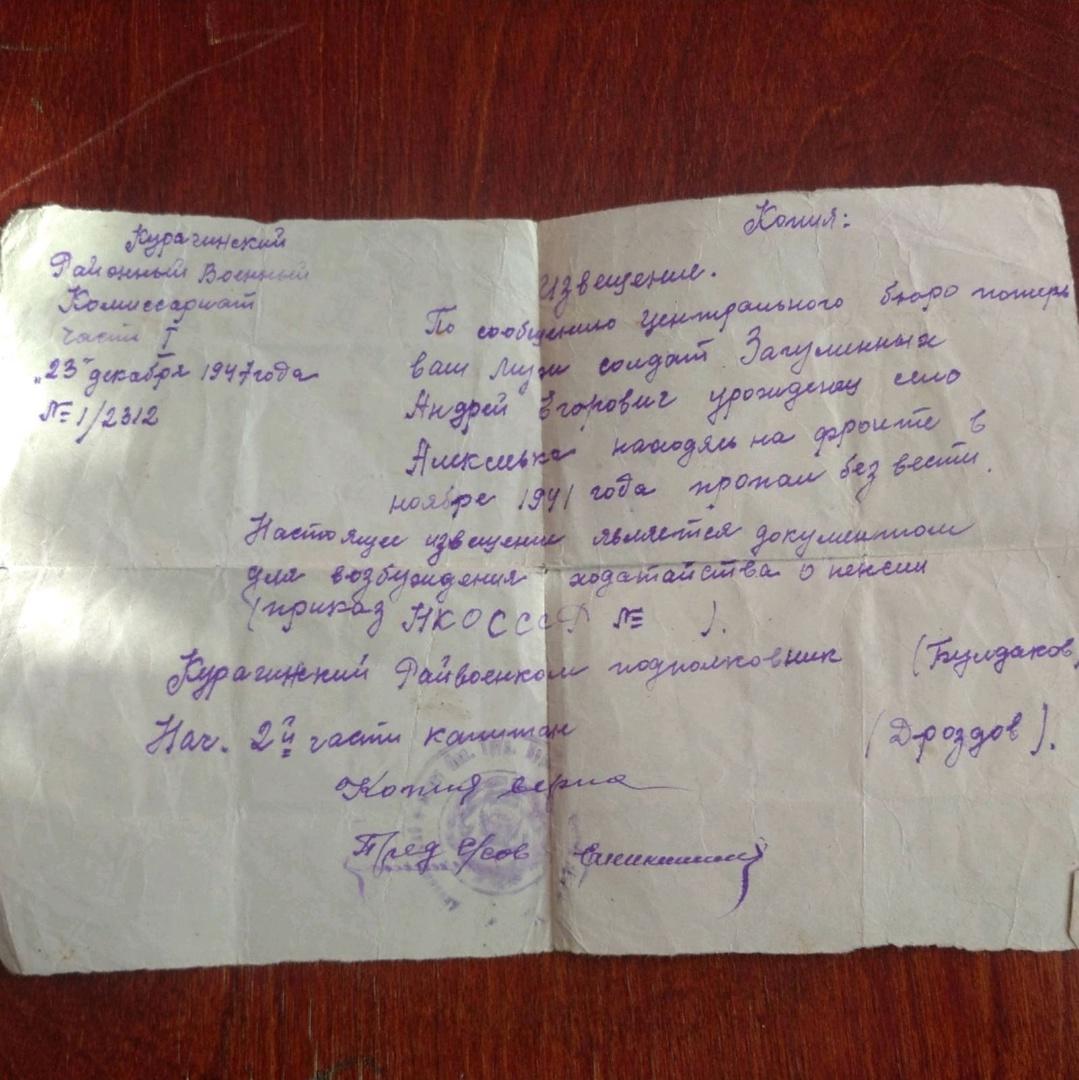 Копия:
Курагинский
Районный Военный
Комиссариат
части I
"23" декабря 1947 года
№ 1/2312
Извещение.
По сообщению центрального бюро потерь
ваш муж солдат Загуменных
Андрей Егорович уроженец село
находясь на фронте в
ноябре 1941 года пропал без вести.
Настоящее извещение является документом
для возбуждения ходатайства о пенсии
(приказ НКО СССР №      ).
Курагинский Райвоенком подполковник (Булдаков)
Нач. 2й части капитан (Дроздов).
Копия верна
Пред с/сов